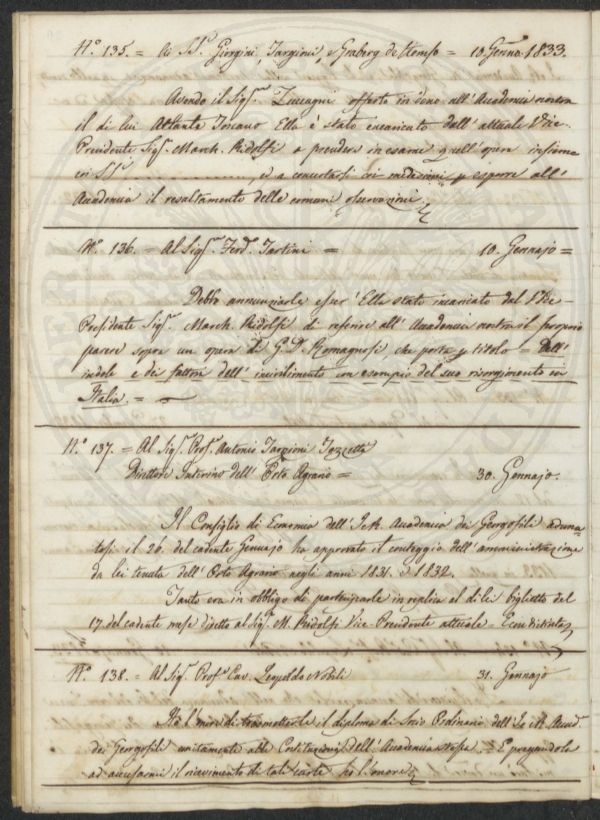 N.° 135. = Ai SS.ri Giorgini, Targioni, e Graberg de Hemso = 10. Genn.o 1833.
Avendo il Sig.r Zuccagni offerto in dono all'Accademia nostra
il di lui Atlante Toscano Ella è stato incaricato dall'attuale Vice-
Presidente Sig.r March. Ridolfi a prendere in esame quell'opera insieme
coi SS.ri .................., e a concertarsi coi medesimi p esporre all'
Accademia il resultamento delle comuni osservazioni
N.° 136. = Al Sig.r Ferd.o Tartini = 10. Gennajo =
Debbo annunziarle esser' Ella stato incaricato dal Vice-
Presidente Sig.r March. Ridolfi di referire all'Accademia nostra il proprio
parere sopra un opera di G. D. Romagnosi, che porta p titolo = Dell'
indole e dei fattori dell'incivilimento con esempio del suo risorgimento in
Italia. =
N.° 137. = Al Sig.r Prof.r Antonio Targioni Tozzetti
Direttore Interino dell'Orto Agrario = 30. Gennajo.
Il Consiglio di Economia dell'I. e R. Accademia dei Georgofili aduna-
tosi il 26. del cadente Gennajo ha approvato il conteggio dell'amministrazione
da lei tenuta dell'Orto Agrario negli anni 1831. e 1832.
Tanto era in obbligo di parteciparle in replica al di lei biglietto del
17. del cadente mese diretto al Sig.r M. Ridolfi Vice-Presidente attuale =
N.° 138. = Al Sig.r Prof.r Cav. Leopoldo Nobili 31. Gennajo
Ho l'onore di trasmetterle il diploma di Socio Ordinario dell'I. e R. Accad.
dei Georgofili unitamente alle Costituzioni dell'Accademia stessa. = E pregandola
ad accusarmi il ricevimento di tali carte ho l'onore